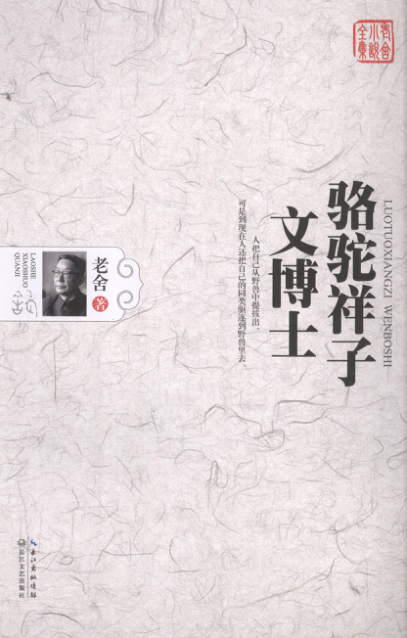 老舍
小说
全集
骆驼祥子
文博士
LUOTUOXIANGZI WENBOSHI
人把自己从野兽中提拔出,
可是到现在人还把自己的同类驱逐到野兽里去。
老舍 著
LAOSHE
XIAOSHUO
QUANJI
长江出版传媒
长江文艺出版社